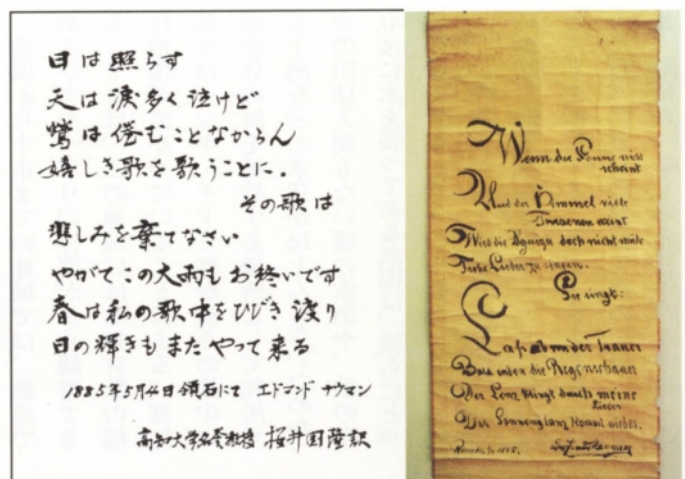 日は照らす
天は涙多く泣けど
鶯は倦むことなからん
嬉しき歌を歌うことに.
その歌は
悲しみを棄てなさい
やがてこの大雨もお終いです
春は私の歌中をひびき渡り
日の輝きもまたやって来る
1885年5月4日領石にて エドマンド ナウマン
高知大学名誉教授 桜井国隆訳
Wenn die Sonne nie
scheint
Und der Himmel viele
Thraenen weint
Wird die doch nicht müde
Frohe Lieder zu singen.
Sie singt:
Lass ab von der Trauer
Bald enden die Regenschauer
Der Lenz klingt durch meine
Lieder
Der Sonnenglanz kommt wieder.
1885.